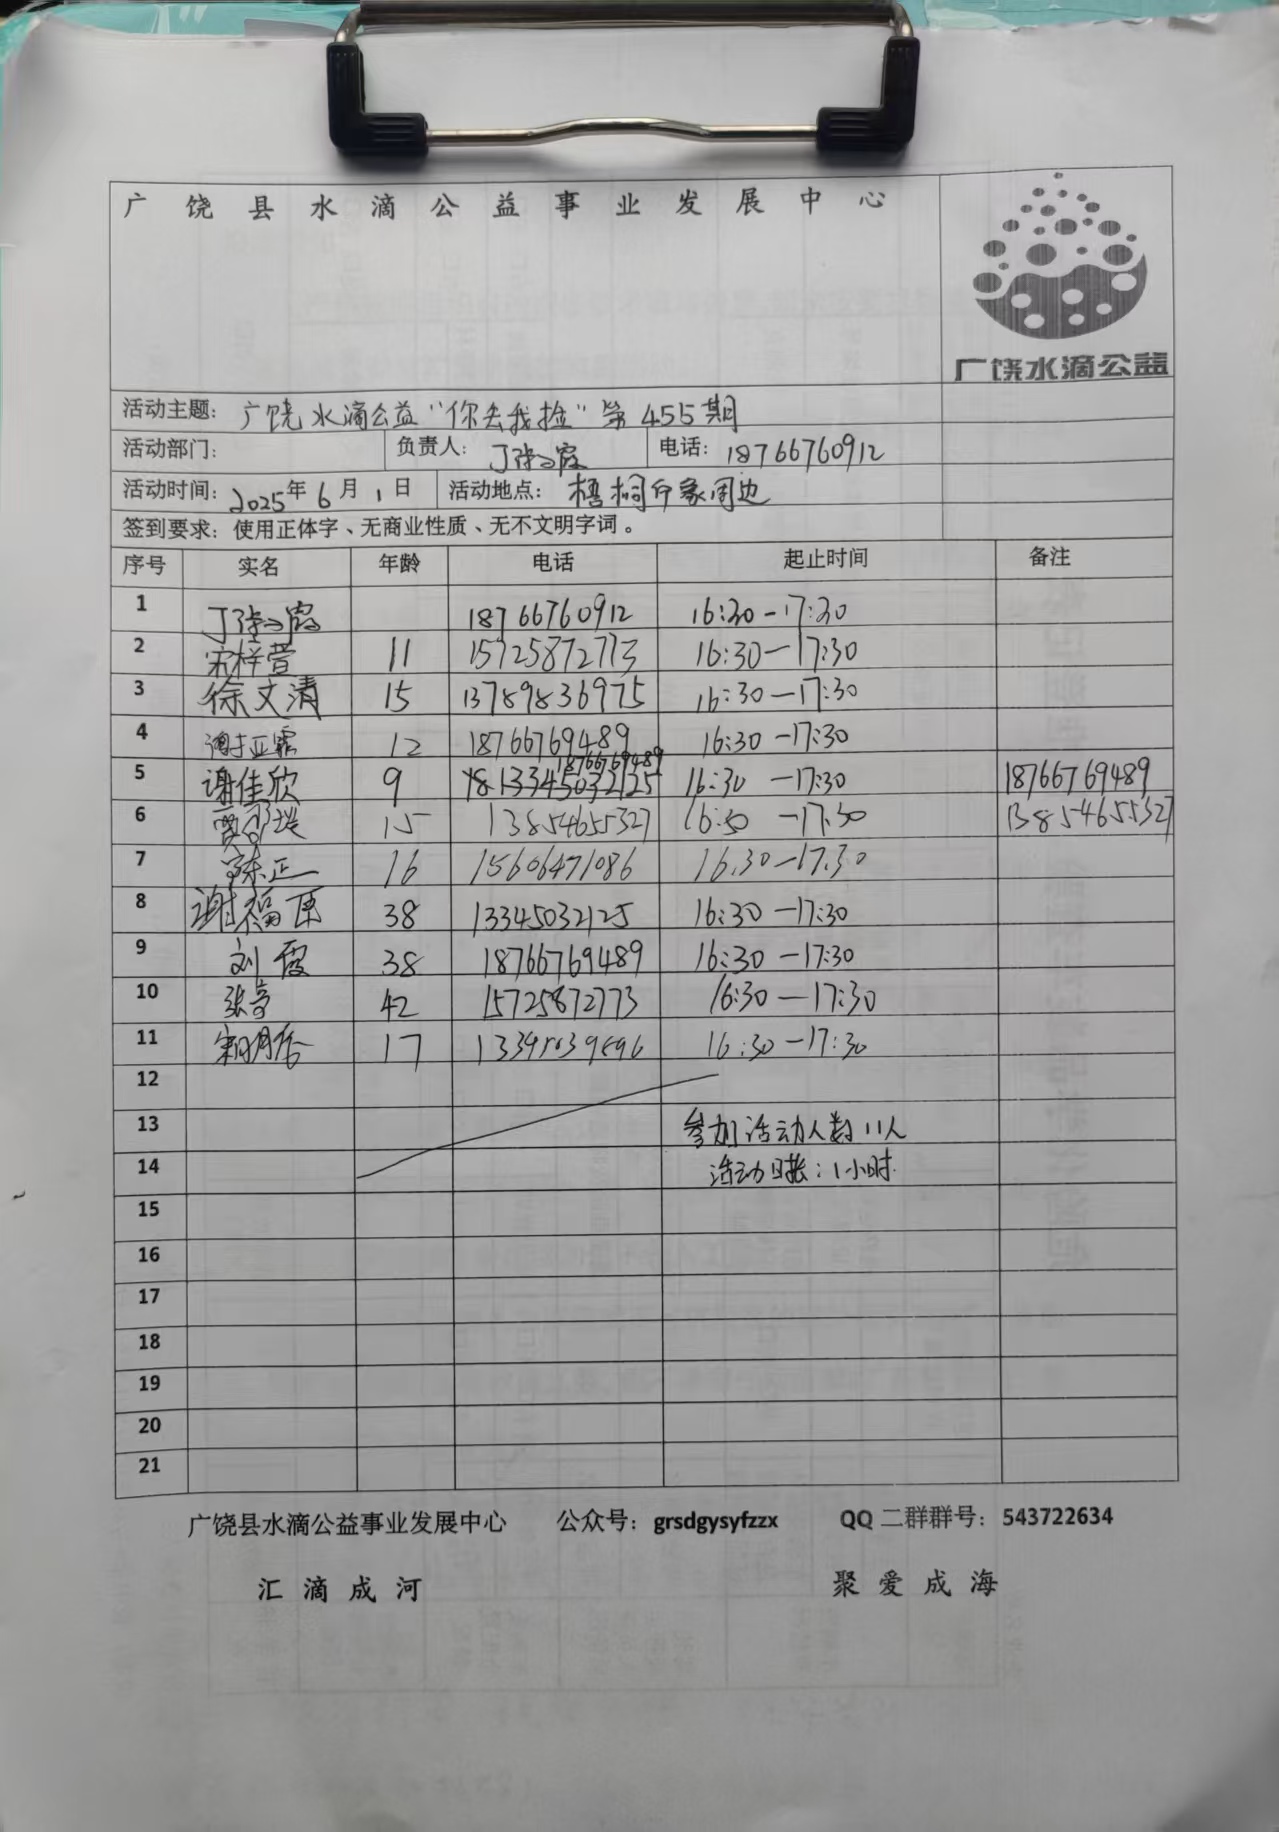 广饶县水滴公益事业发展中心
广饶水滴公益
活动主题：广饶水滴公益"你丢我捡"第455期
活动部门： 负责人：丁张霞 电话：18766760912
活动时间：2025年6月1日 活动地点：梧桐印象周边
签到要求：使用正体字、无商业性质、无不文明字词。
序号 实名 年龄 电话 起止时间 备注
1 丁张霞 18766760912 16:30-17:30
2 宋梓萱 11 15725872773 16:30-17:30
3 徐文清 15 13789836975 16:30-17:30
4 谢亚霏 12 18766769489 16:30-17:30
18766769489
5 谢佳欣 9 13345032125 16:30-17:30 18766769489
6 贾 15 13854655327 16:30-17:30 13854655327
7 陈正 16 15606471086 16.30-17.30
8 谢福 38 13345032125 16:30-17:30
9 刘霞 38 18766769489 16:30-17:30
10 张 42 15725872773 16:30-17:30
11 17 16:30-17:30
12
13 参加活动人数11人
14 活动时长：1小时
15
16
17
18
19
20
21
广饶县水滴公益事业发展中心 公众号：grsdgysyfzzx QQ二群群号：543722634
汇滴成河 聚爱成海